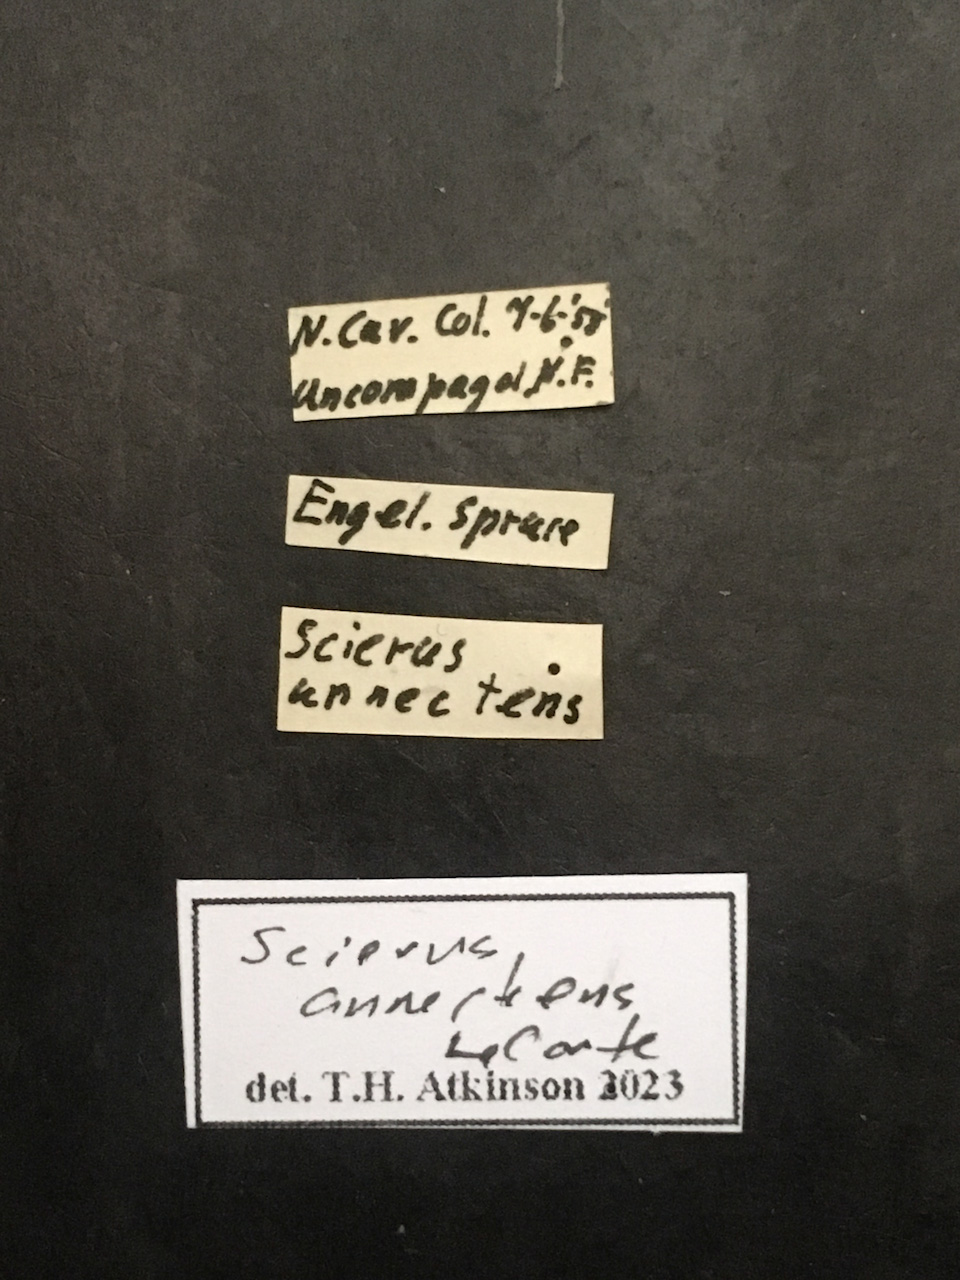 N. Cav. Col.
Uncompagd N.F.
Engel. Spruce
Scierus
annectens
Scierus
annectens
LeConte
det. T.H. Atkinson 2023